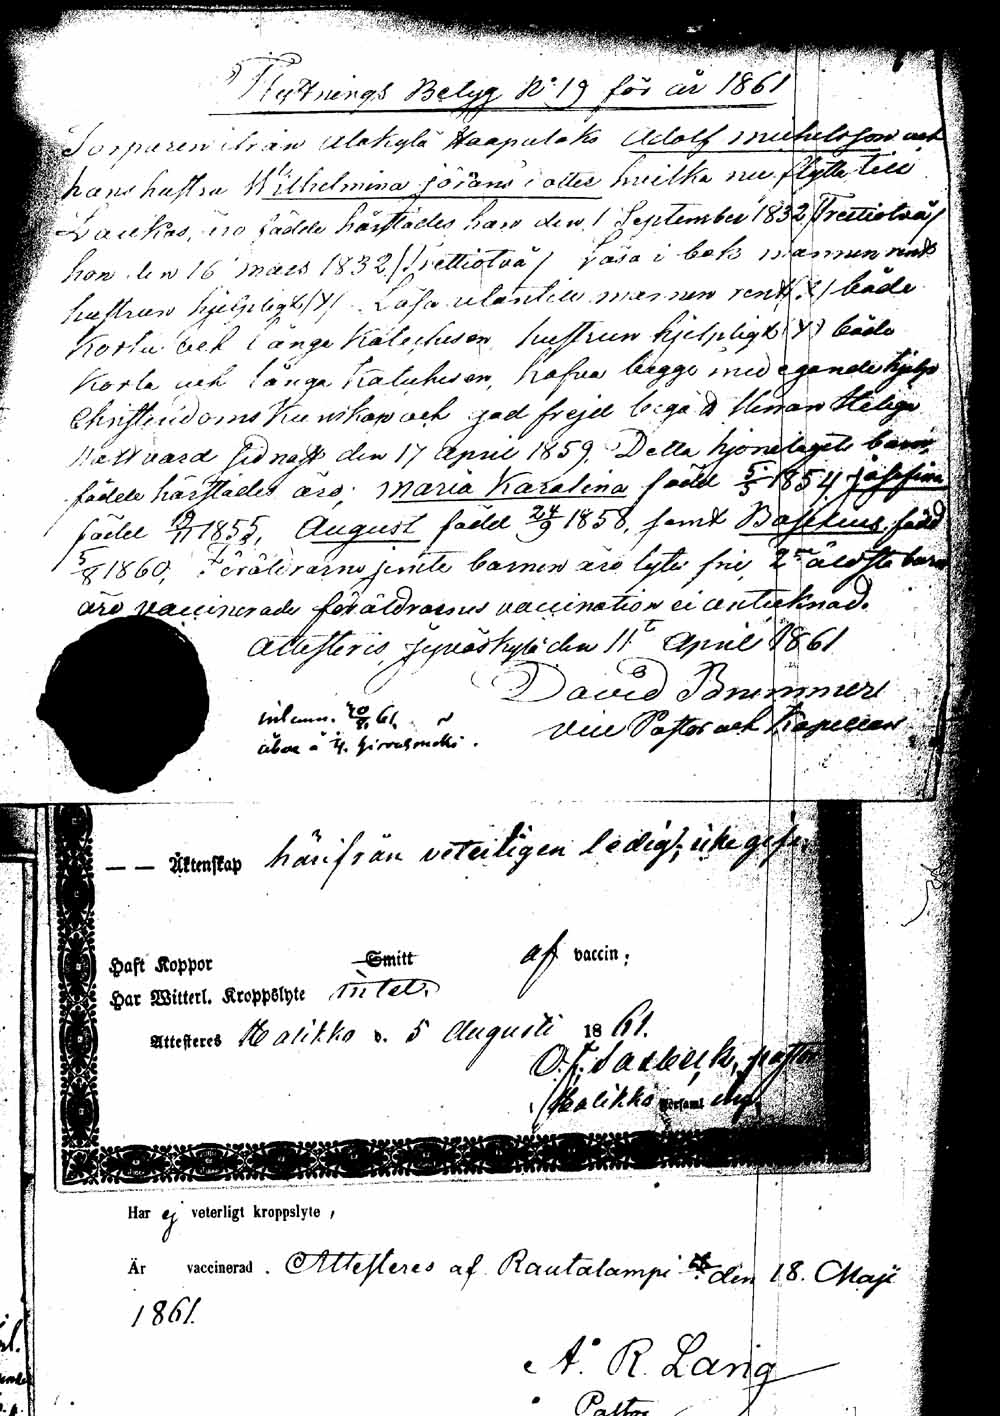 Flyttnings Betyg No 19 för år 1861
Torparen ifrån Alakylä Haapalaks Adolf Michelsson och
hans hustru Wilhelmina Jörans dotter hvilka nu flytta till
Laukas, äro födde härstädes han den 1 September 1832 /Trettiotvå/
hon den 16 mars 1832 /Trettiotvå/ Läsa i bok mannen rent
hustrun hjelpligt /x/ Läsa utantill mannen rent /x/ både
Korta och långa Katechesen, hustrun hjelpligt /x/ både
Korta och långa Katechesen, hafva begge med egande hjelp
Christendoms Kunskap och god frejd begå Herrans Heliga
Nattvard sednast den 17 April 1859. Detta hjonelagets barn,
födde härstädes äro; Maria Karolina född 5/5 1854 Josefina
född 9/11 1855, August född 24/9 1858, samt Basilius född
5/8 1860, Föräldrarne jemte barnen äro lytes fri, 2ne äldsta barn
äro vaccinerade föräldrarnes vaccination ei antecknad.
Attesteris, Jyväskylä den 11t April 1861
David Brummer
Vice Pastor och Kapellan
inlemn. 20/8 61.
— — Äktenskap härifrån veterligen ledig;
Haft Koppor Smitt af vaccin;
Har Witterl. Kroppslyte intet.
Attesteres Halikko d. 5 Augusti 1861.
pastor
Halikko Församl
Har ej veterligt kroppslyte,
Är vaccinerad. Attesteres af Rautalampi den 18. Maji
1861.
A. R. Lang
Pastor